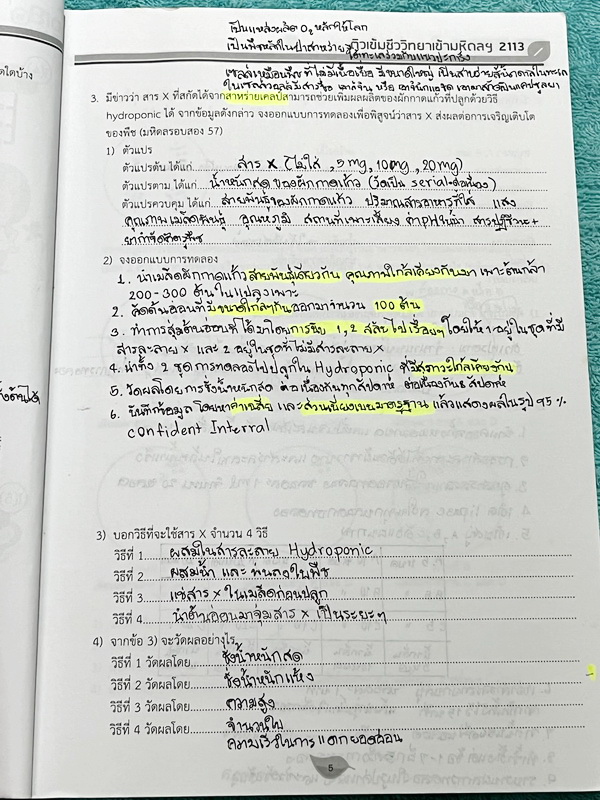 เป็นแหล่งผลิต O₂ หลักให้โลก
เป็นพืชหลักในป่าสาหร่าย
ติวเข้มชีววิทยาเข้ามหิดลฯ 2113
3. มีข่าวว่า สาร X ที่สกัดได้จากสาหร่ายเคลป์สามารถช่วยเพิ่มผลผลิตของผักกาดแก้วที่ปลูกด้วยวิธี
hydroponic ได้ จากข้อมูลดังกล่าว จงออกแบบการทดลองเพื่อพิสูจน์ว่าสาร X ส่งผลต่อการเจริญเติบโต
ของพืช (มหิดลรอบสอง 57)
1) ตัวแปร
ตัวแปรต้น ได้แก่ สาร X (ไม่ใส่, 5mg, 10mg, 20mg)
ตัวแปรตาม ได้แก่ น้ำหนักสดของผักกาดแก้ว (วัดเป็น serial-ต่อเนื่อง)
ตัวแปรควบคุม ได้แก่ สายพันธุ์ของผักกาดแก้ว ปริมาณสารอาหารที่ใส่ แสง
คุณภาพเมล็ดพันธุ์ อุณหภูมิ สถานที่เพาะเลี้ยง ค่าpHในน้ำ สารปฏิชีวนะ+
ยากำจัดศัตรูพืช
2) จงออกแบบการทดลอง
1. นำเมล็ดผักกาดแก้วสายพันธุ์เดียวกัน คุณภาพใกล้เคียงกันมา เพาะต้นกล้า
200-300 ต้นในแปลงเพาะ
2. คัดต้นอ่อนที่มีขนาดใกล้ๆกันออกมาจำนวน 100 ต้น
3. ทำการสุ่มต้นอ่อนที่ได้มาโดยการนับ 1, 2 สลับไปเรื่อยๆ โดยให้ 1 อยู่ในชุดที่มี
สารละลาย X และ 2 อยู่ในชุดที่ไม่มีสารละลาย X
4. นำทั้ง 2 ชุดการทดลองไปปลูกใน Hydroponic ที่มีสภาวะใกล้เคียงกัน
5. วัดผลโดยการชั่งน้ำหนักสด ต่อเนื่องกันทุกสัปดาห์ ต่อเนื่องกัน 8 สัปดาห์
6. บันทึกข้อมูล โดยหาค่าเฉลี่ย และส่วนเบี่ยงเบนมาตรฐาน แล้วแสดงผลในรูป 95 %
confident Interral
3) บอกวิธีที่จะใช้สาร X จำนวน 4 วิธี
วิธีที่ 1 ผสมในสารละลาย Hydroponic
วิธีที่ 2 ผสมน้ำ และ พ่นลงในพืช
วิธีที่ 3 แช่สาร X ในเมล็ดก่อนปลูก
วิธีที่ 4 นำต้นอ่อนมาจุ่มสาร X เป็นระยะๆ
4) จากข้อ 3) จะวัดผลอย่างไร
วิธีที่ 1 วัดผลโดย ชั่งน้ำหนักสด
วิธีที่ 2 วัดผลโดย ชั่งน้ำหนักแห้ง
วิธีที่ 3 วัดผลโดย ความสูง
วิธีที่ 4 วัดผลโดย จำนวนใบ
ความเร็วในการแตกยอดอ่อน
5